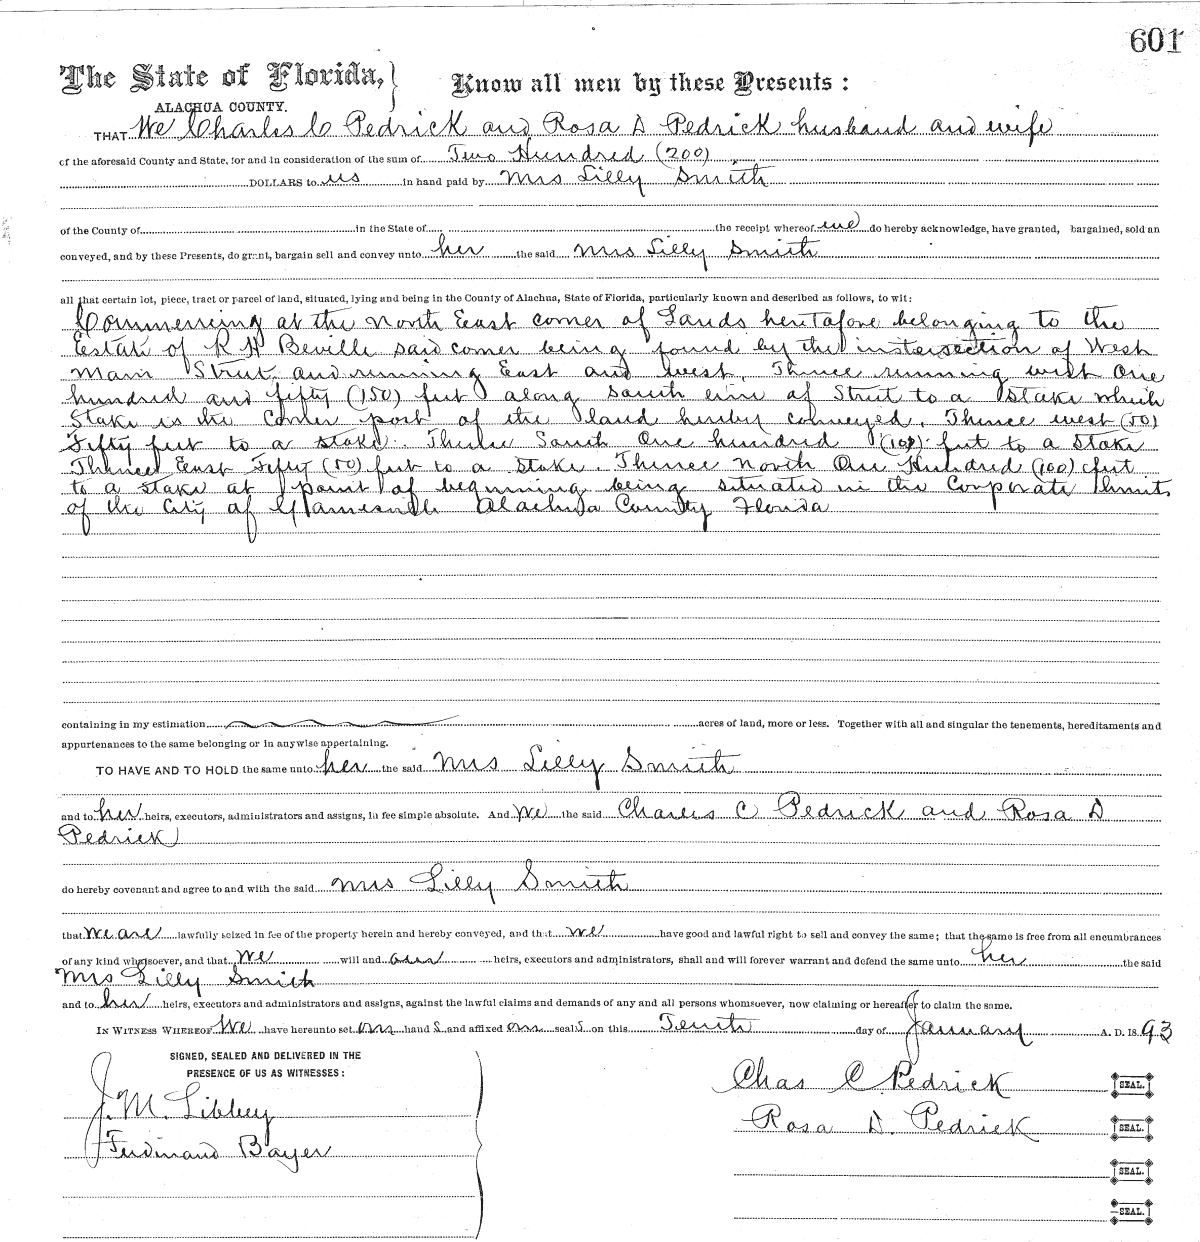 601
The State of Florida,
ALACHUA COUNTY.
Know all men by these Presents:
THAT We Charles C Pedrick and Rosa D Pedrick husband and wife
of the aforesaid County and State, for and in consideration of the sum of Two Hundred (200)
DOLLARS to us in hand paid by Mrs Lilly Smith
of the County of in the State of the receipt whereof we do hereby acknowledge, have granted, bargained, sold an
conveyed, and by these Presents, do grant, bargain sell and convey unto her the said Mrs Lilly Smith
all that certain lot, piece, tract or parcel of land, situated, lying and being in the County of Alachua, State of Florida, particularly known and described as follows, to wit:
Commencing at the North East corner of Lands heretofore belonging to the
Estate of R H Beville said corner being found by the instersection of West
Main Street and running East and west. Thence running west One
hundred and fifty (150) feet along South line of Street to a Stake which
Stake is the Corner post of the land hereby conveyed. Thence west (50)
Fifty feet to a stake. Thence South One hundred (100) feet to a Stake
Thence East Fifty (50) feet to a stake. Thence North One Hundred (100) feet
to a stake at point of beginning being situated in the Corporate limits
of the City of Gainesville Alachua County Florida
containing in my estimation acres of land, more or less. Together with all and singular the tenements, hereditaments and
appurtenances to the same belonging or in anywise appertaining.
TO HAVE AND TO HOLD the same unto her the said Mrs Lilly Smith
and to her heirs, executors, administrators and assigns, in fee simple absolute. And We the said Charles C Pedrick and Rosa D
Pedrick
do hereby covenant and agree to and with the said Mrs Lilly Smith
that we are lawfully seized in fee of the property herein and hereby conveyed, and that we have good and lawful right to sell and convey the same; that the same is free from all encumbrances
of any kind whatsoever, and that we will and our heirs, executors and administrators, shall and will forever warrant and defend the same unto her the said
Mrs Lilly Smith
and to her heirs, executors and administrators and assigns, against the lawful claims and demands of any and all persons whomsoever, now claiming or hereafter to claim the same.
IN WITNESS WHEREOF We have hereunto set our hand s and affixed our seal s on this Tenth day of January A. D. 18 93
SIGNED, SEALED AND DELIVERED IN THE
PRESENCE OF US AS WITNESSES:
J. M. Libbey
Ferdinand Bayer
Chas C Pedrick SEAL.
Rosa D. Pedrick SEAL.
SEAL.
SEAL.